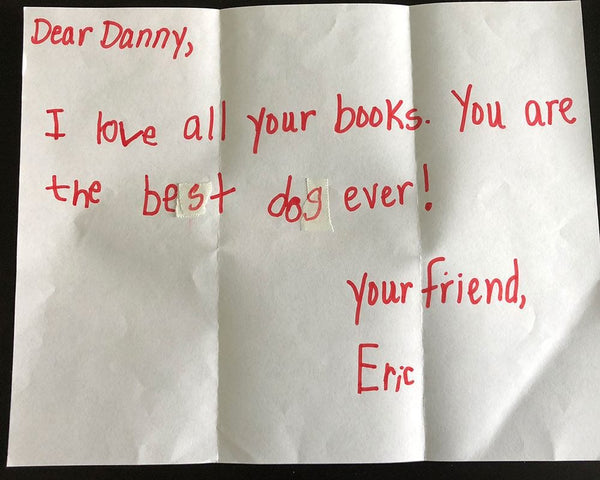 Dear Danny,
I love all your books. You are
the best dog ever!
your friend,
Eric